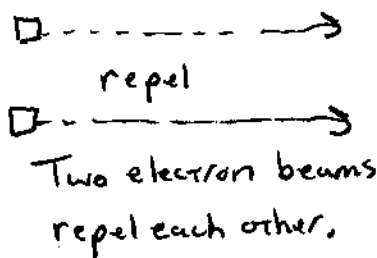 repel
Two electron beams
repel each other.